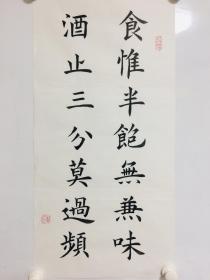 食惟半飽無兼味
酒止三分莫過頻